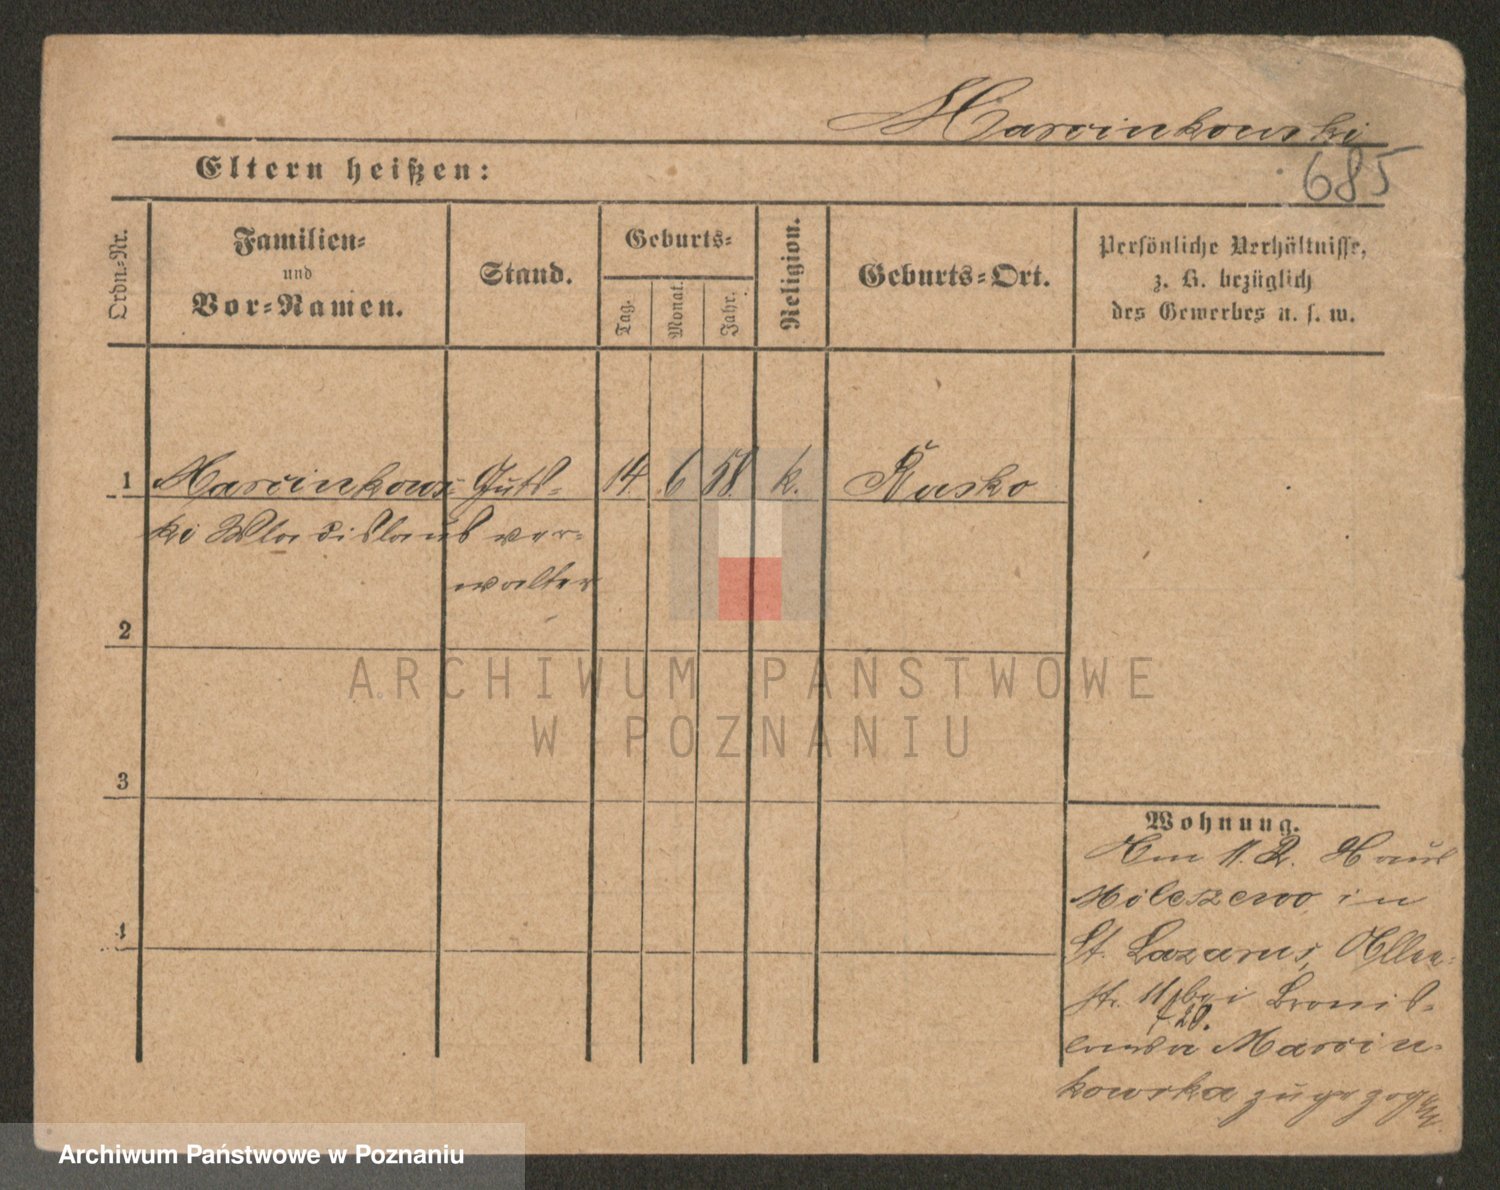 Marcinkowski
685
Eltern heißen:
Ordn.-Nr.
Familien-
und
Vor-Namen.
Stand.
Geburts-
Tag.
Monat.
Jahr.
Religion.
Geburts-Ort.
Persönliche Verhältnisse,
z. B. bezüglich
des Gewerbes u. s. w.
1 Marcinkows- Guts- 14. 6 58. k. Rusko
ki Wladislaus ver-
walter
2
3
4
Wohnung.
Am 11. 2. 
in
St. Lazarus, Allee-
str. 11 bei Bronis-
28.
lawa Marcin-
kowska zugezogen
ARCHIWUM PAŃSTWOWE
W POZNANIU
Archiwum Państwowe w Poznaniu